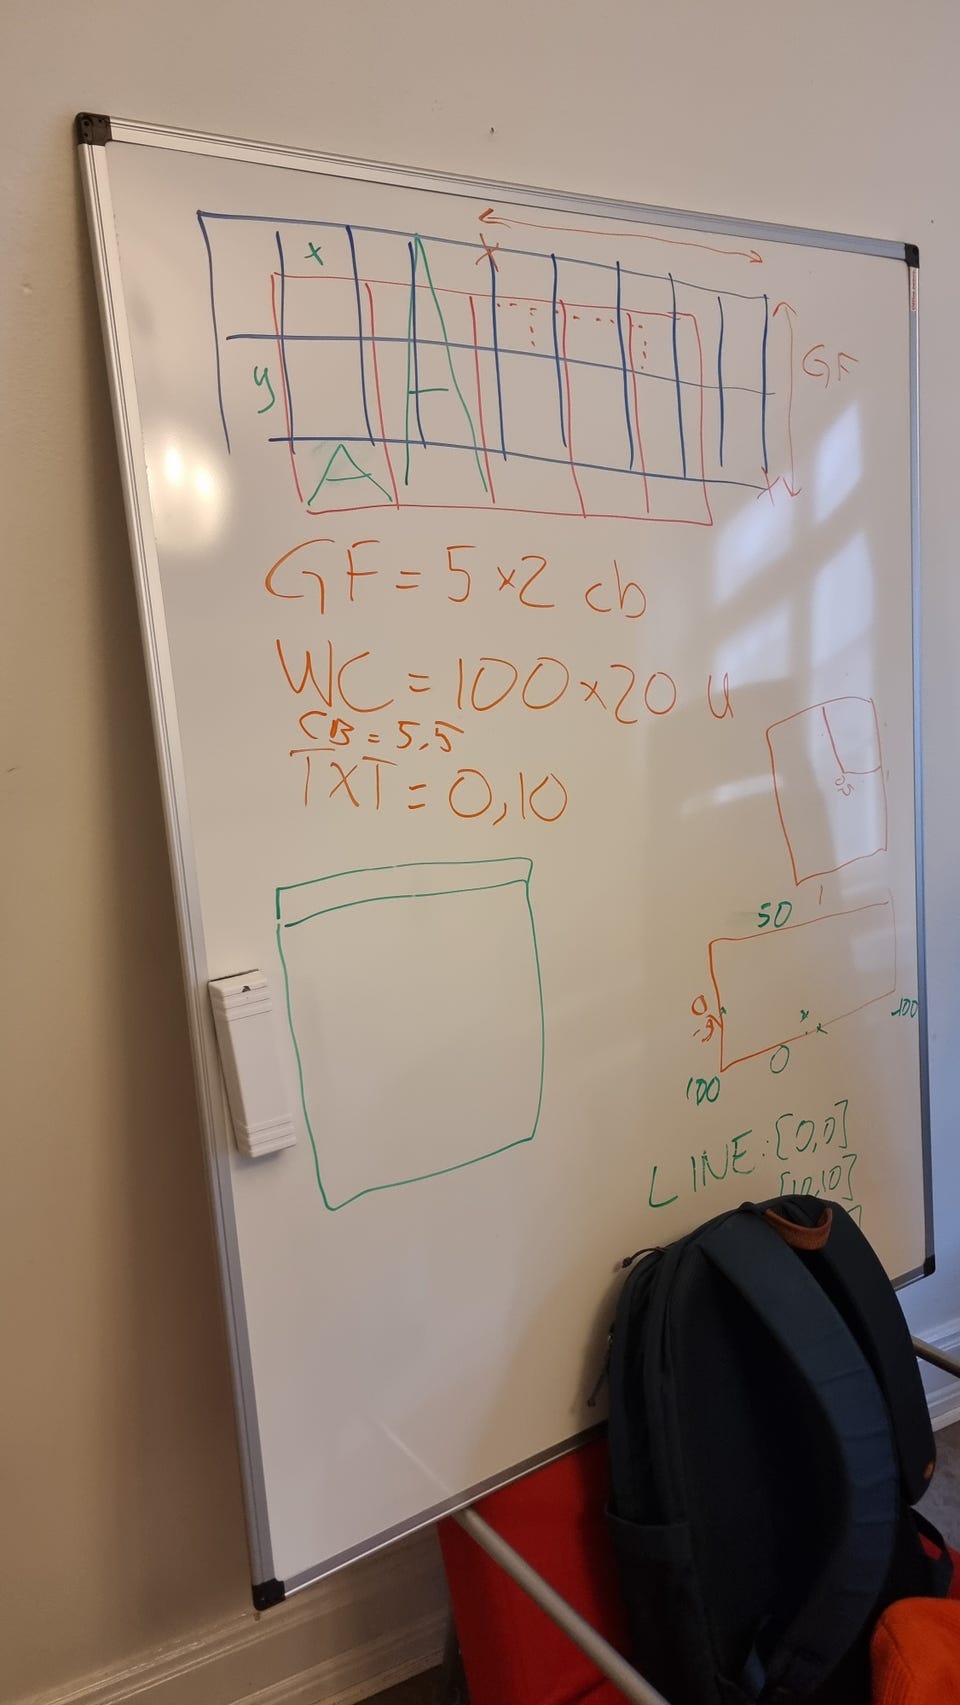 x
X
GF
y
A
A
GF = 5 x 2 cb
WC = 100 x 20 u
CB = 5,5
TXT = 0,10
0,5
1
50
0
-100
0
100
LINE: [0,0]
[10,10]
]